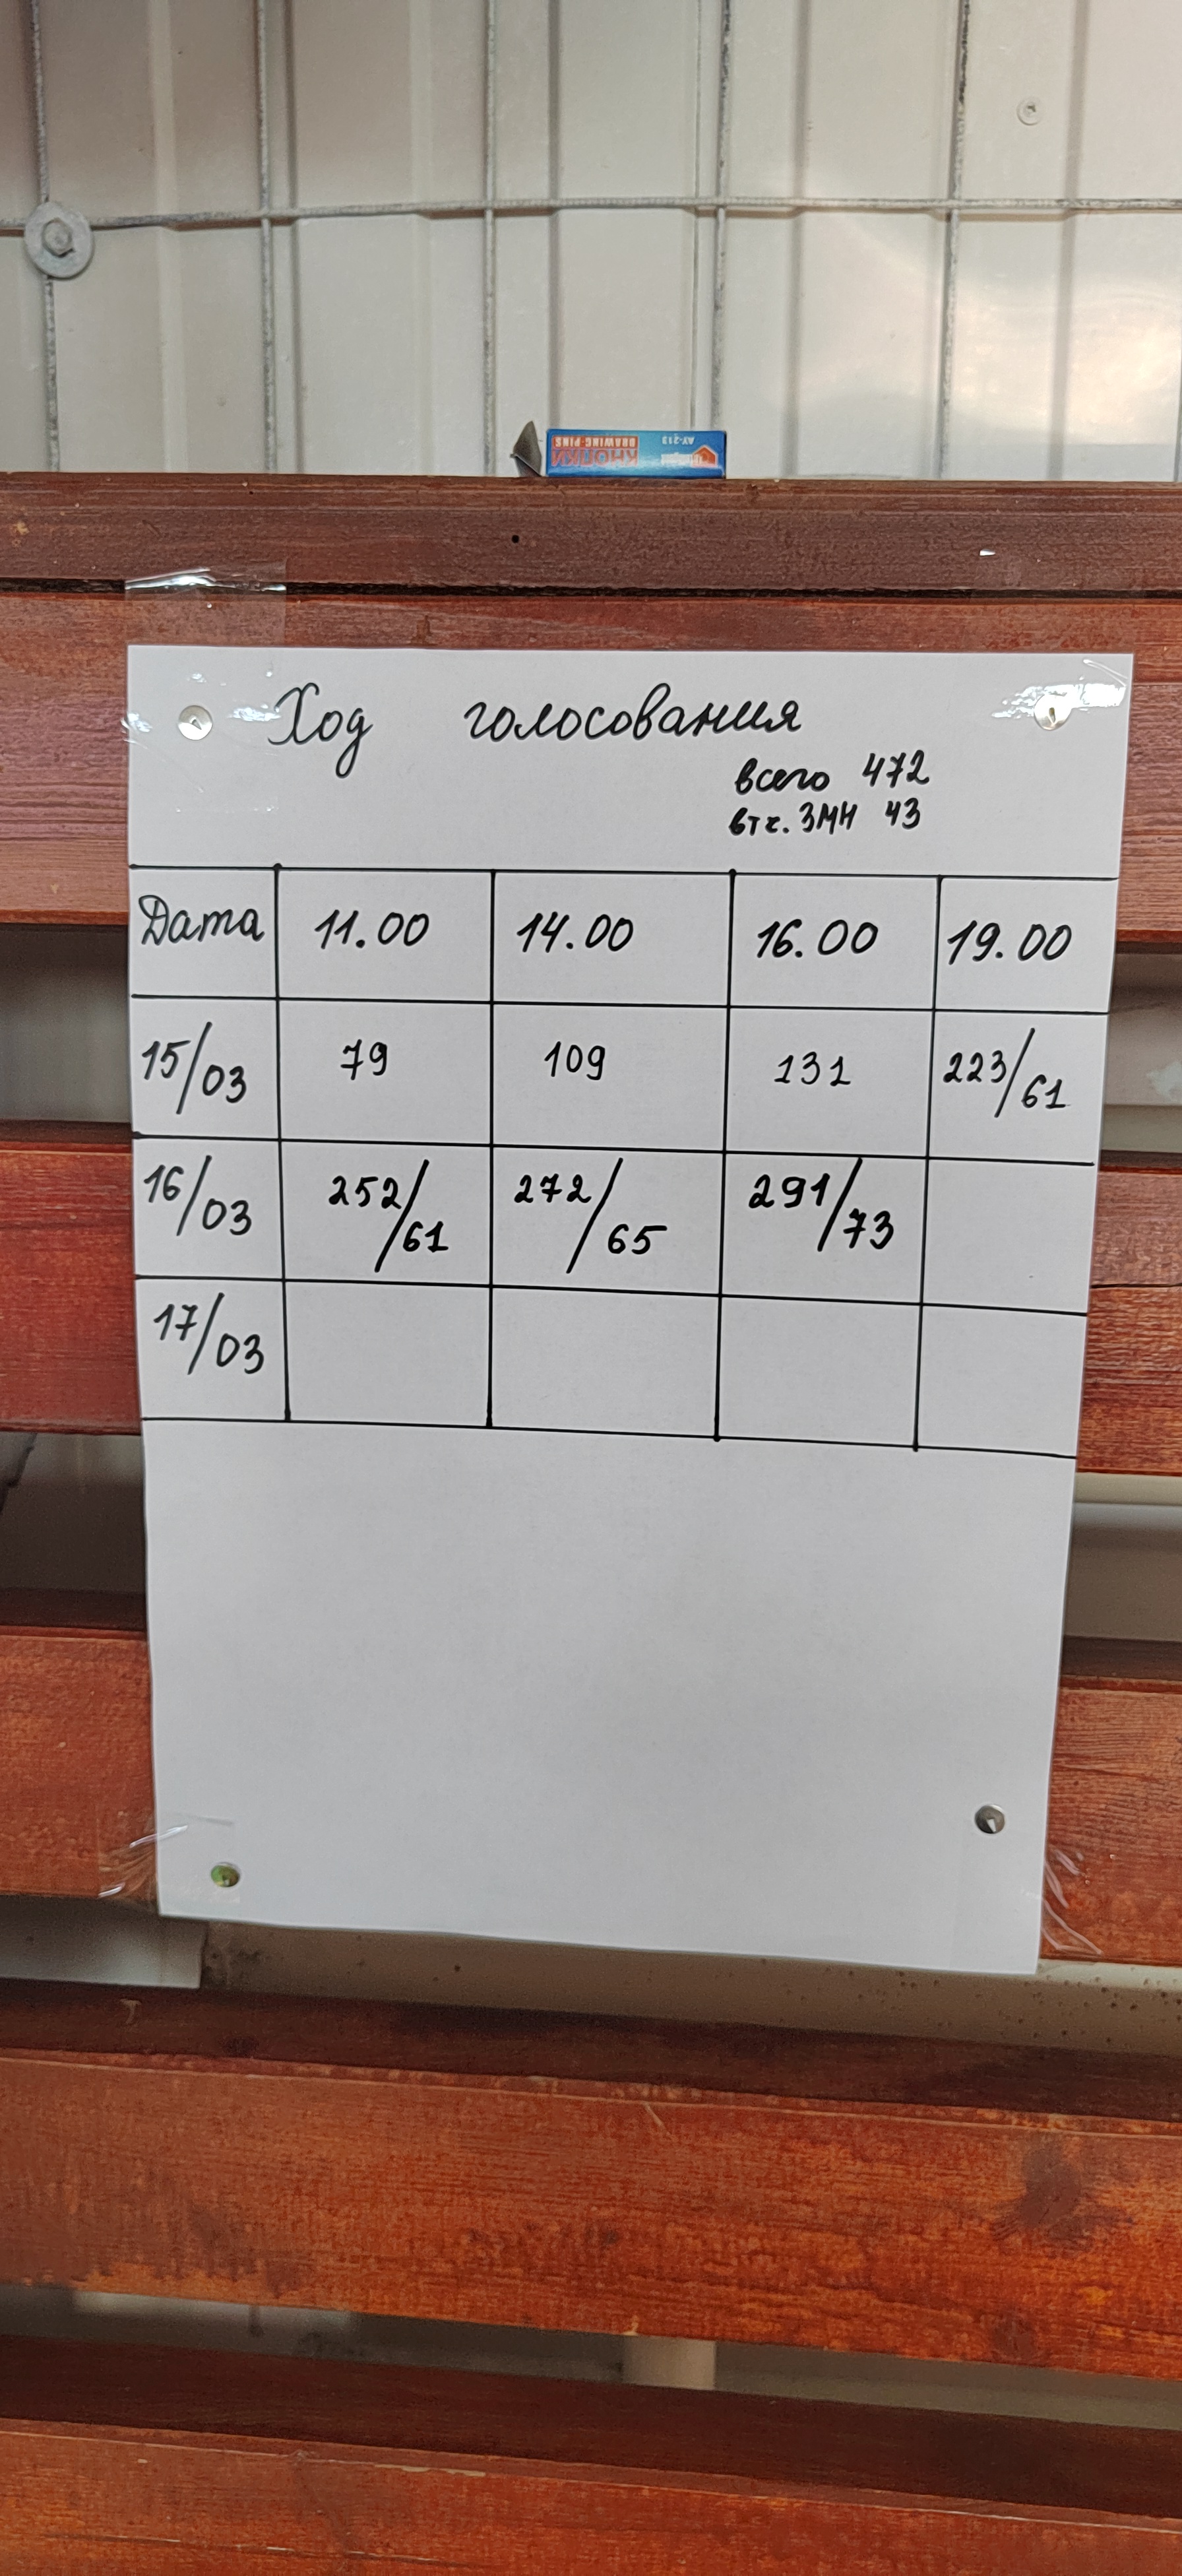 AY-213
КНОПКИ
DRAWING-PINS
Ход голосования
всего 472
вт ч. ЗМН 43
Дата 11.00 14.00 16.00 19.00
15/03 79 109 131 223/61
16/03 252/61 272/65 291/73
17/03